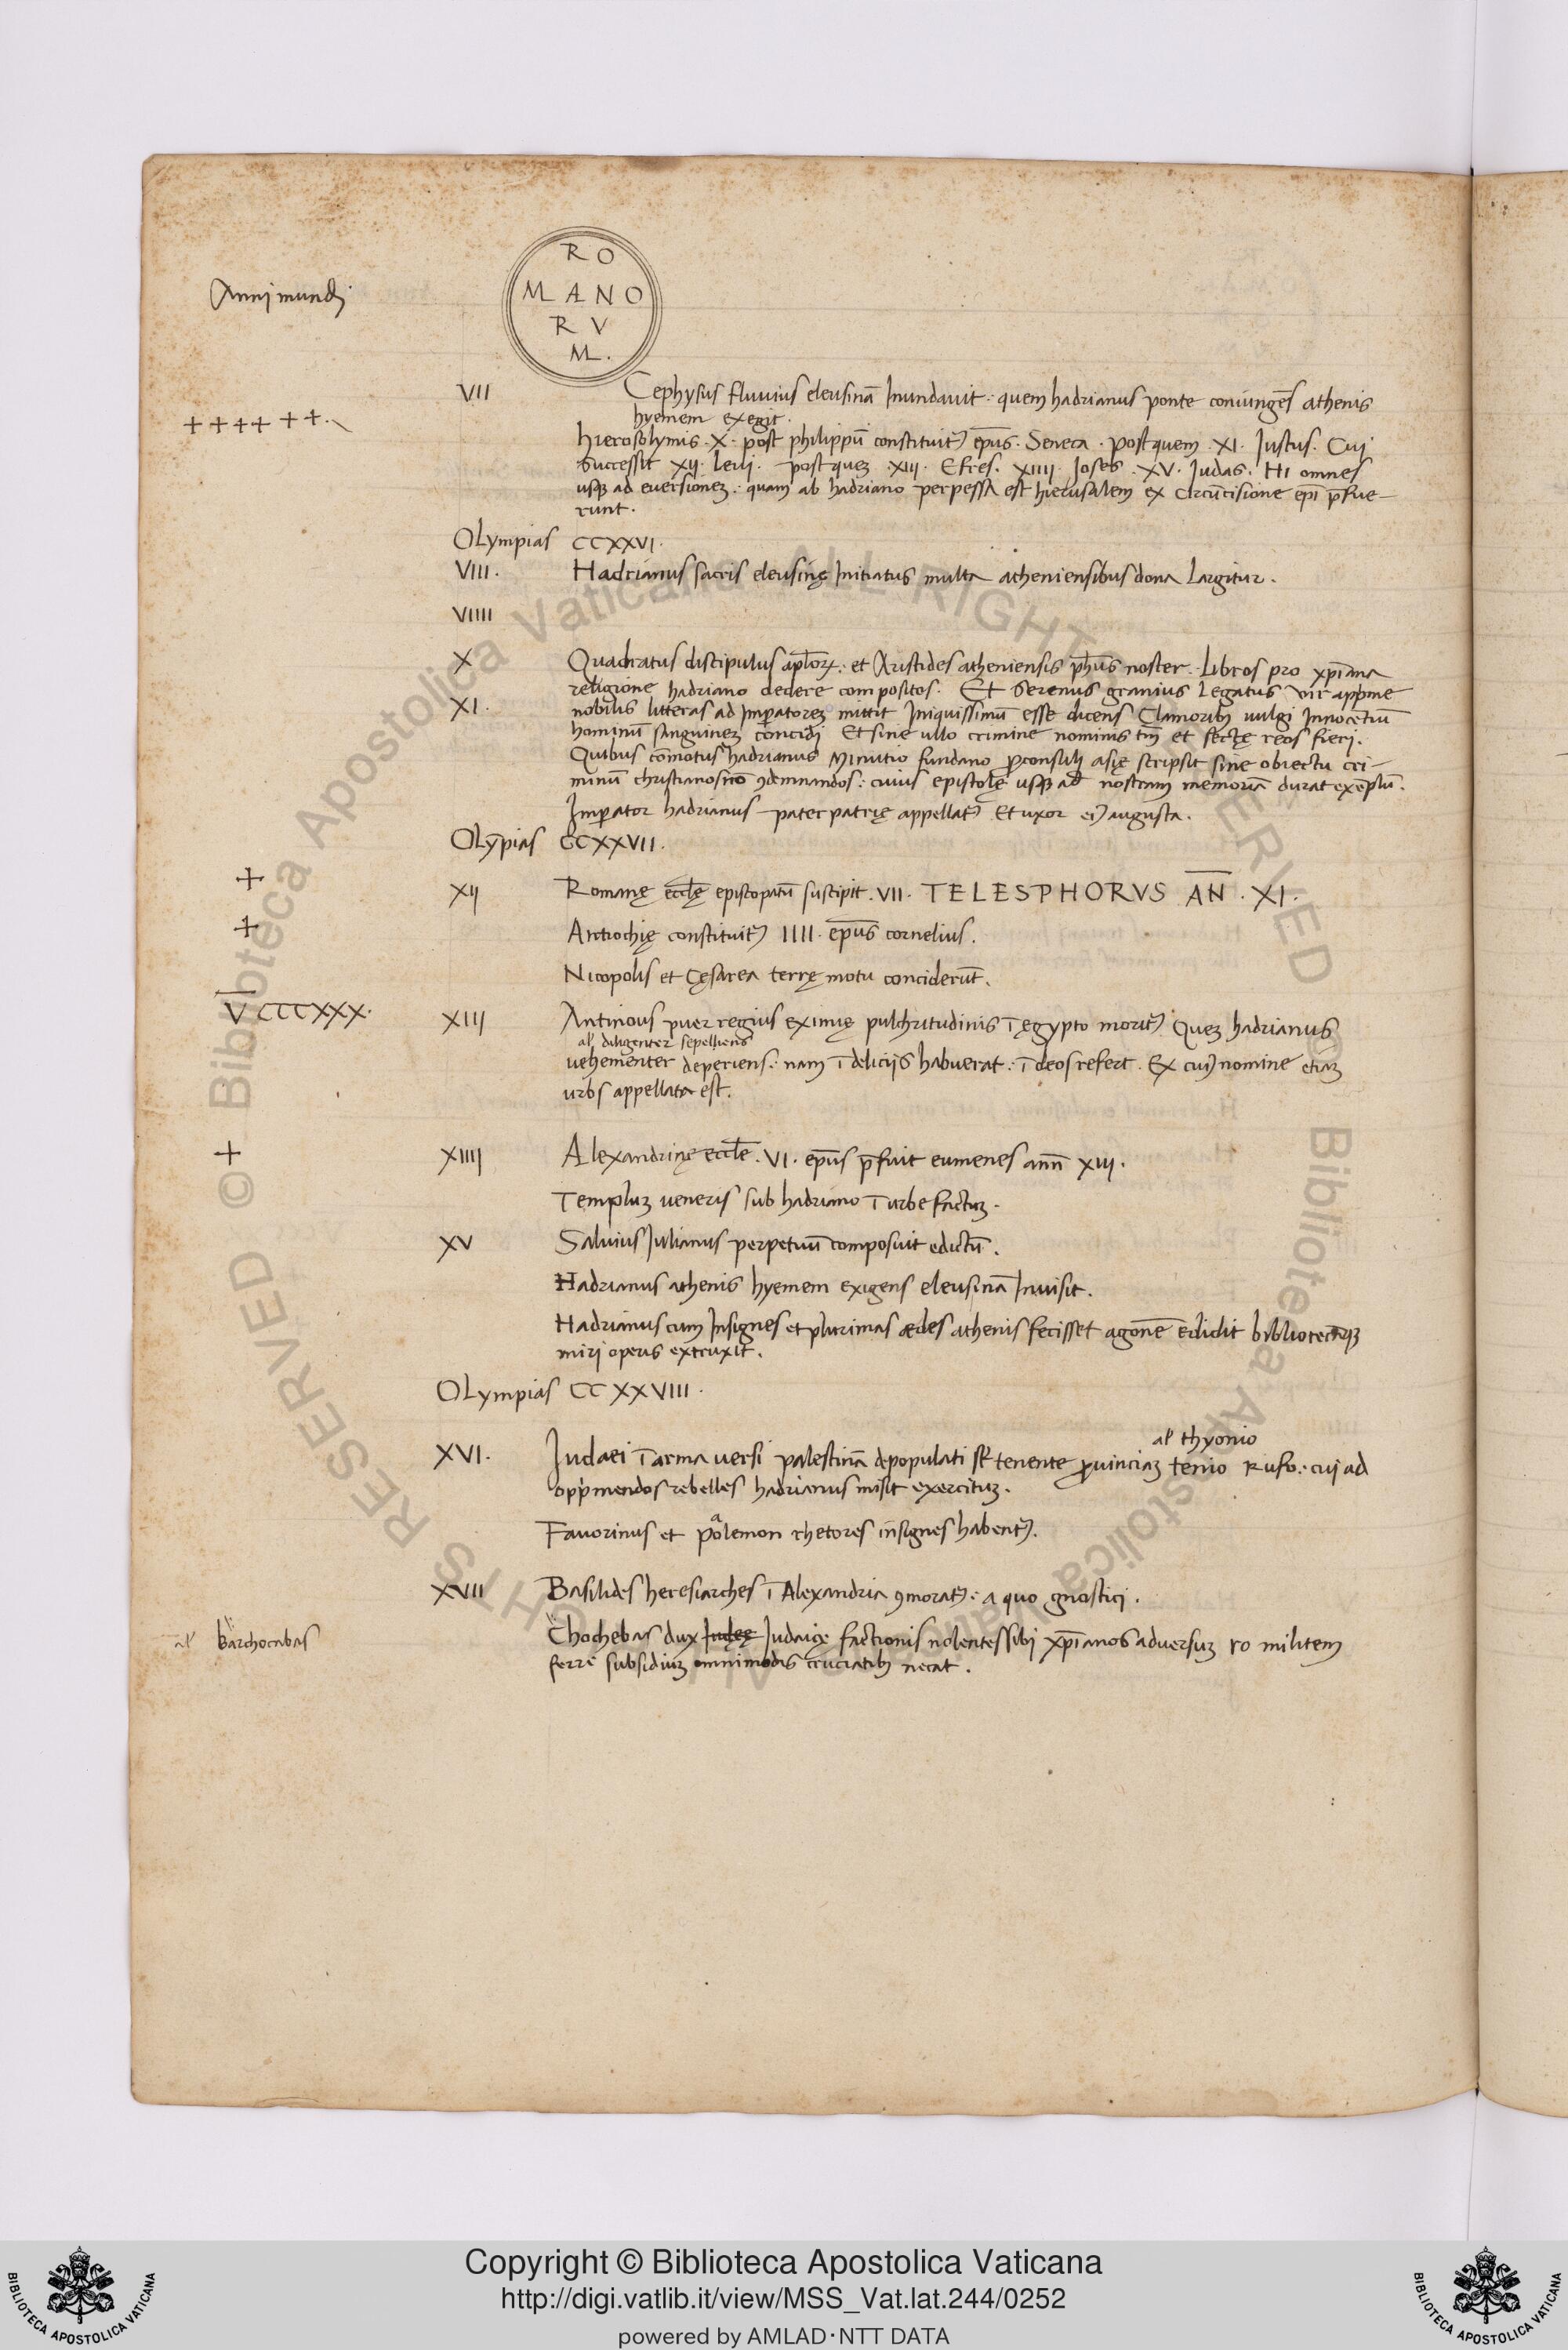 Anni mundi
RO
MANO
RV
M.
VII Cephysus fluuius eleusinā Inundauit. quem hadrianus ponte coniungēs athenis
hyemem exegit.
++++ ++.
hierosolymis .X. post philippū constituit᷒ ep̄us. Seneca. post quem .XI. Justus. Cuj
successit XIJ. Leuj. post quez XIIJ. Efres. XIIIJ. Joses .XV. Judas. Hi omnes
usq̨ ad euersionez. quam ab hadriano perpessa est hierusalem ex circūcisione epi p̄fue-
runt.
Olympias CCXXVI.
VIII. Hadrianus sacris eleusinę Initiatus multa atheniensibus dona Largitur.
VIIII
X Quadratus discipulus apl̄oꝝ. et Aristides atheniensis ph̄us noster. Libros pro xp̄iana
religione hadriano dedere compositos. Et Serenus granius Legatus uir apprime
XI. nobilis litteras ad Imp̄atorez mittit Iniquissimū esse dicens Clamoribꝫ uulgi Innocētiū
hominū sanguinez concidj Et sine ullo crimine nominis tm̄ et sectę reos fierj.
Quibus com̄otus hadrianus Minutio fundano ꝓconsulj asię scripsit sine obiectu cri-
minū christianos nō ꝯdemnandos: cuius epistolę usq̨ ad nostram memoriā durat exēplū.
Imp̄ator hadrianus pater patrię appellat᷒ Et uxor ei᷒ augusta.
Olȳpias CCXXVII.
+
XIJ Romanę eccl̄ę episcopatū suscipit .VII. TELESPHORVS AN̄. XI.
+
Antiochię constituit᷒ IIII. ep̄us cornelius.
Nicopolis et Cęsarea terrę motu conciderūt.
V̄ CCCXXX.
XIIJ Antinous puer regius eximię pulchritudinis ī ęgypto morit᷒. Quez hadrianus
al' diligenter sepelliens
uehementer deperiens. nam ī delicijs habuerat. ī deos refert. Ex cui᷒ nomine etiaz
urbs appellata est.
+
XIIIJ Alexandrinę eccl̄e. VI. ep̄us p̄fuit eumenes ann̄ XIIJ.
Templuz ueneris sub hadriano ī urbe factuz.
XV Saluius Julianus perpetuū composuit edictū.
Hadrianus athenis hyemem exigens eleusinā Inuisit.
Hadrianus cum Insignes et plurimas ædes athenis fecisset agonē edidit bibliotecāq̨
mirj operis extruxit.
Olympias CCXXVIII.
al' thyonio
XVI. Iudaei ī arma uersi palestinā depopulati st̄ tenente ꝓuinciaz tenio Rufo. cuj ad
opp̄mendos rebelles hadrianus misit exercituz.
Fauorinus et Pᵃolemon rhetores insignes habent᷒.
XVII Basilides heresiarches ī Alexandria ꝯmorat᷒. a quo gnosticj.
al' barchocabas
Chochebas dux Iudęę Judaicę factionis nolentes sibi xp̄ianos aduersuz ro militem
ferre subsidiuz omnimodis cruciatibꝫ necat.
Copyright © Biblioteca Apostolica Vaticana
http://digi.vatlib.it/view/MSS_Vat.lat.244/0252
powered by AMLAD·NTT DATA
BIBLIOTECA APOSTOLICA VATICANA
BIBLIOTECA APOSTOLICA VATICANA